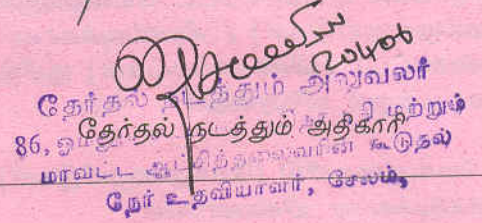 20/4/06
தேர்தல் நடத்தும் அலுவலர்
தேர்தல் நடத்தும் அதிகாரி
86, மற்றும்
மாவட்ட ஆட்சித்தலைவரின் கூடுதல்
நேர் உதவியாளர், சேலம்,